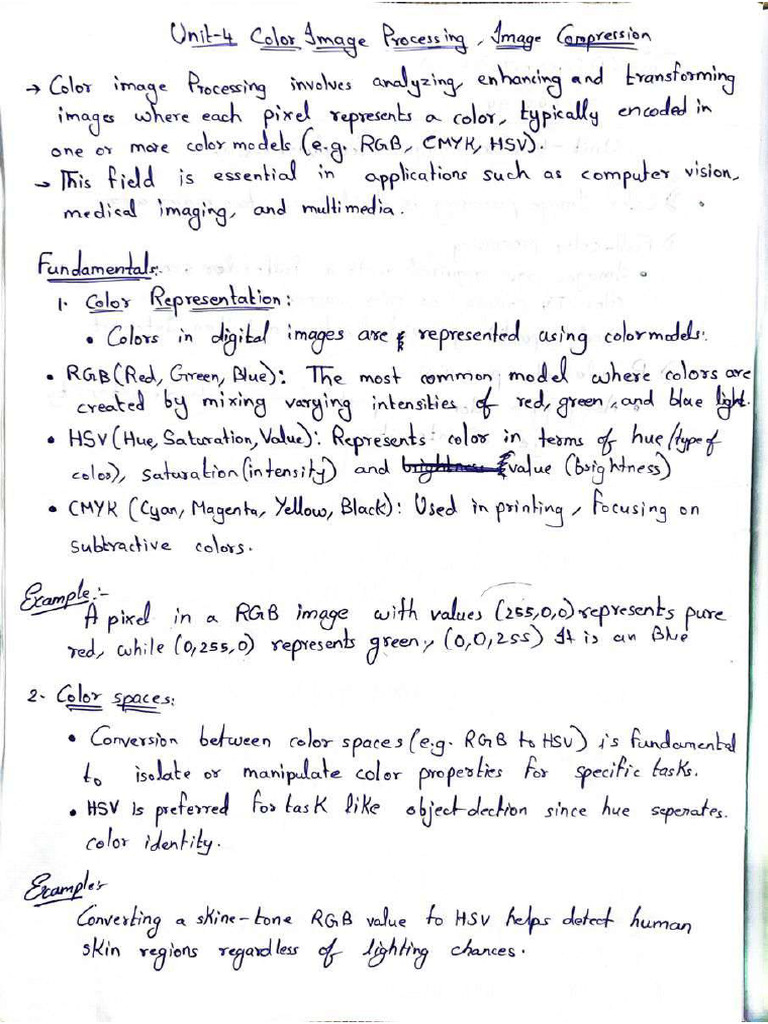 Unit-4 Color Image Processing, Image Compression
→ Color image Processing involves analyzing, enhancing and transforming
images where each pixel represents a color, typically encoded in
one or more color models (e.g. RGB, CMYK, HSV).
→ This field is essential in applications such as computer vision,
medical imaging, and multimedia.
Fundamentals:
1. Color Representation:
• Colors in digital images are represented using colormodels:
• RGB (Red, Green, Blue): The most common model where colors are
created by mixing varying intensities of red, green, and blue light.
• HSV (Hue, Saturation, Value): Represents color in terms of hue (type of
color), saturation (intensity) and value (brightness)
• CMYK (Cyan, Magenta, Yellow, Black): Used in printing, focusing on
subtractive colors.
Example:-
A pixel in a RGB image with values (255,0,0) represents pure
red, while (0,255,0) represents green, (0,0,255) It is an Blue
2- Color spaces:
• Conversion between color spaces (e.g. RGB to HSV) is fundamental
to isolate or manipulate color properties for specific tasks.
• HSV is preferred for task like object dection since hue seperates.
color identity.
Example:
Converting a skine-tone RGB value to HSV helps detect human
skin regions regardless of lighting chances.